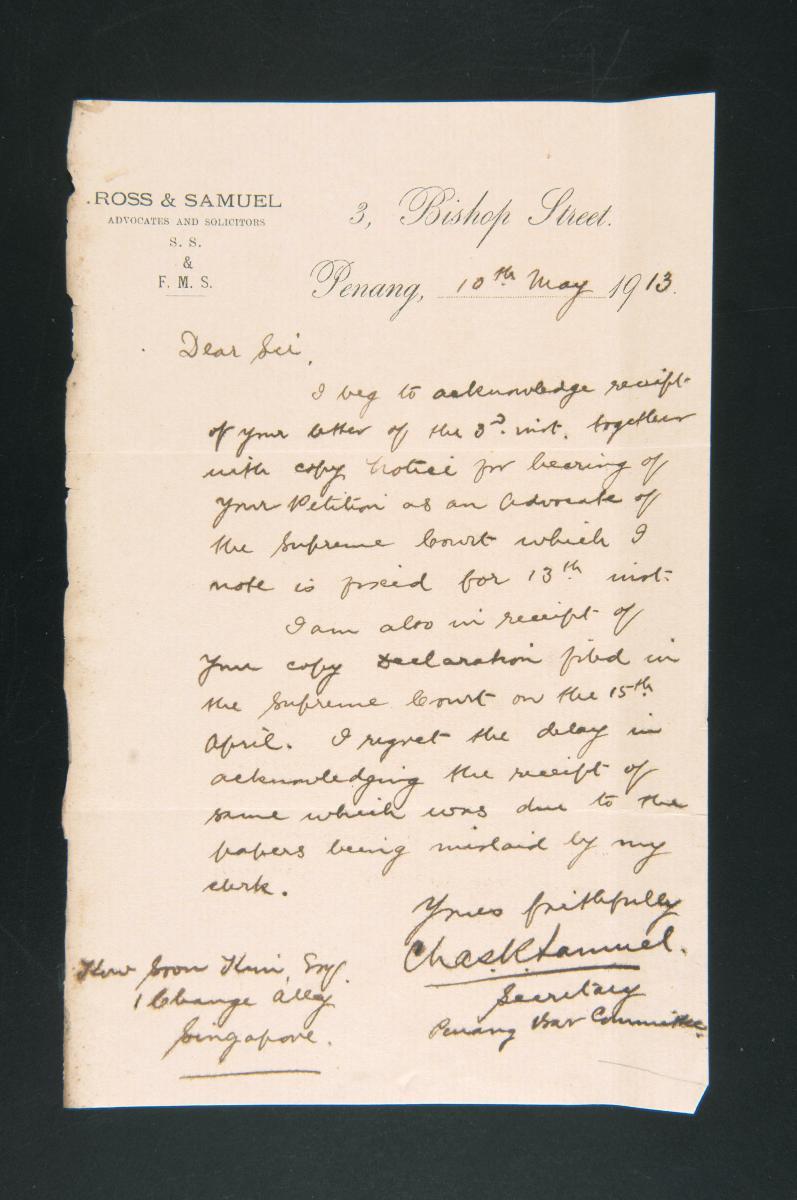 ROSS & SAMUEL
ADVOCATES AND SOLICITORS
S. S.
&
F. M. S.
3, Bishop Street.
Penang, 10th May 1913.
Dear Sir,
I beg to acknowledge receipt
of your letter of the 3d. inst. together
with copy Notice for hearing of
your Petition as an Advocate of
the Supreme Court which I
note is fixed for 13th inst.
I am also in receipt of
your copy Declaration filed in
the Supreme Court on the 15th
April. I regret the delay in
acknowledging the receipt of
same which was due to the
papers being mislaid by my
clerk.
Yours faithfully
Chas. K. Samuel.
Secretary
Penang Bar Committee.
How Soon Kim, Esq.
1 Change Alley
Singapore.